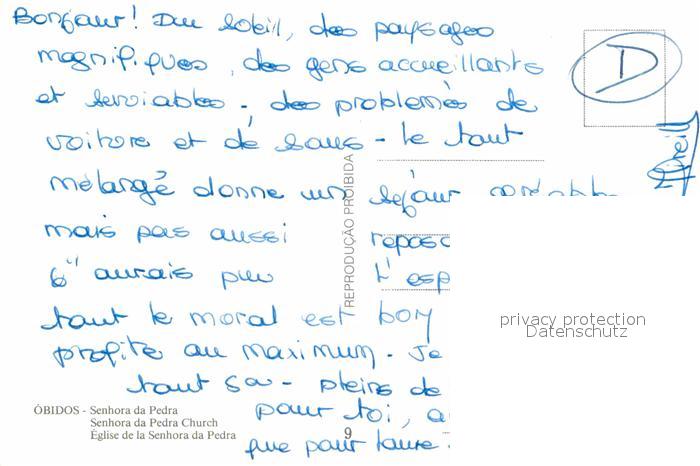 Bonjour! Du soleil, des paysages
magnifiques, des gens accueillants
et serviables - des problèmes de
voiture et de sous - le tout
mélangé donne un séjour
mais pas aussi
aurais pu L'esp
tout le moral est bon
profite au maximum - Je
tout ça - pleins de
pour toi, a
que pour
D
REPRODUÇÃO PROIBIDA
privacy protection
Datenschutz
ÓBIDOS - Senhora da Pedra
Senhora da Pedra Church
Église de la Senhora da Pedra
9